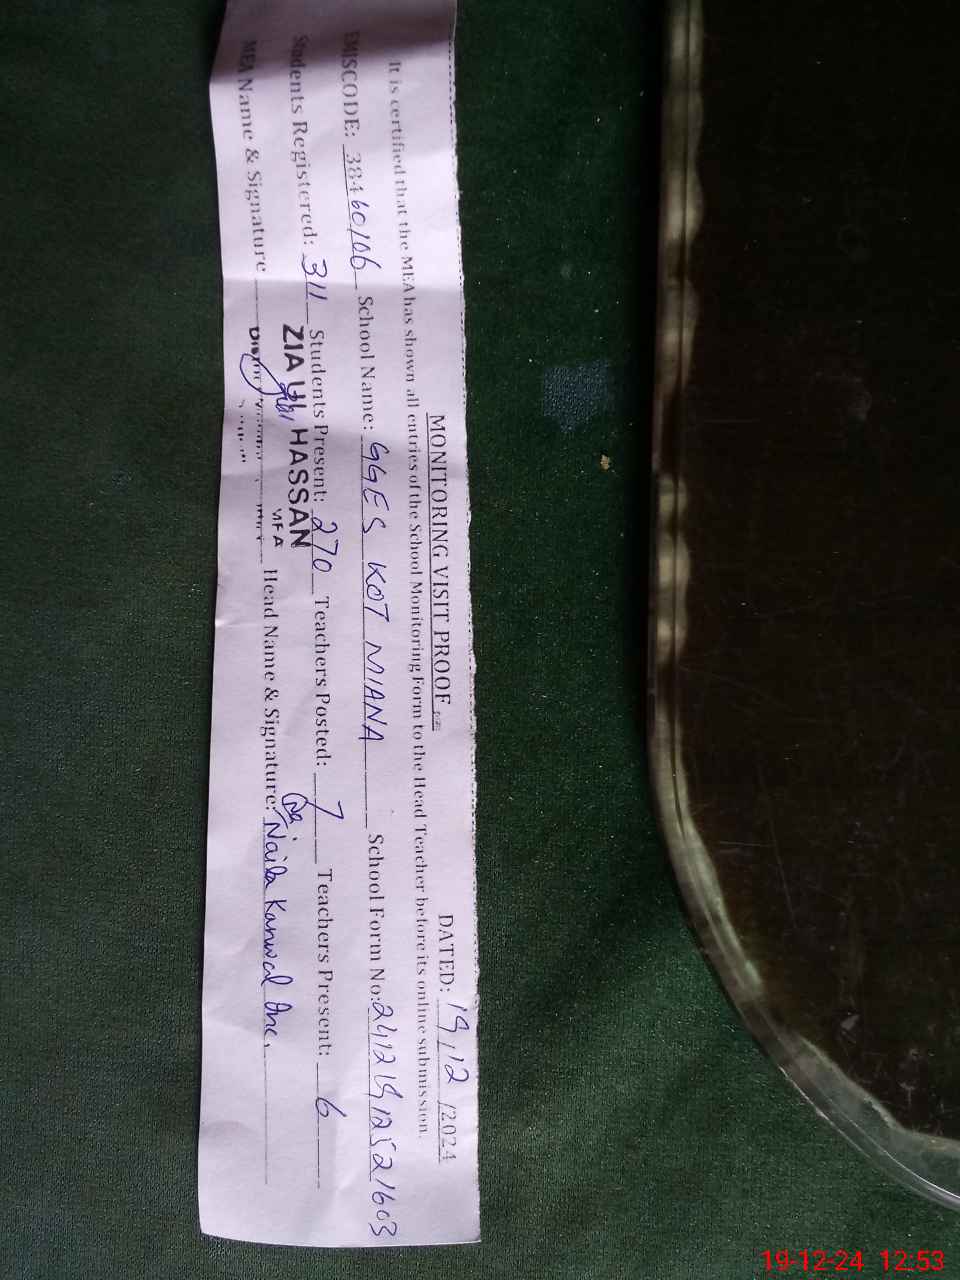 MONITORING VISIT PROOF
DATED: 19/12/2024
It is certified that the MEA has shown all entries of the School Monitoring Form to the Head Teacher before its online submission.
EMISCODE: 38460106 School Name: GGES KOT MIANA School Form No: 24121912521603
Students Registered: 311 Students Present: 270 Teachers Posted: 7 Teachers Present: 6
ZIA UL HASSAN
MEA
MEA Name & Signature Head Name & Signature: Naila Kanwal Inc.
19-12-24 12:53